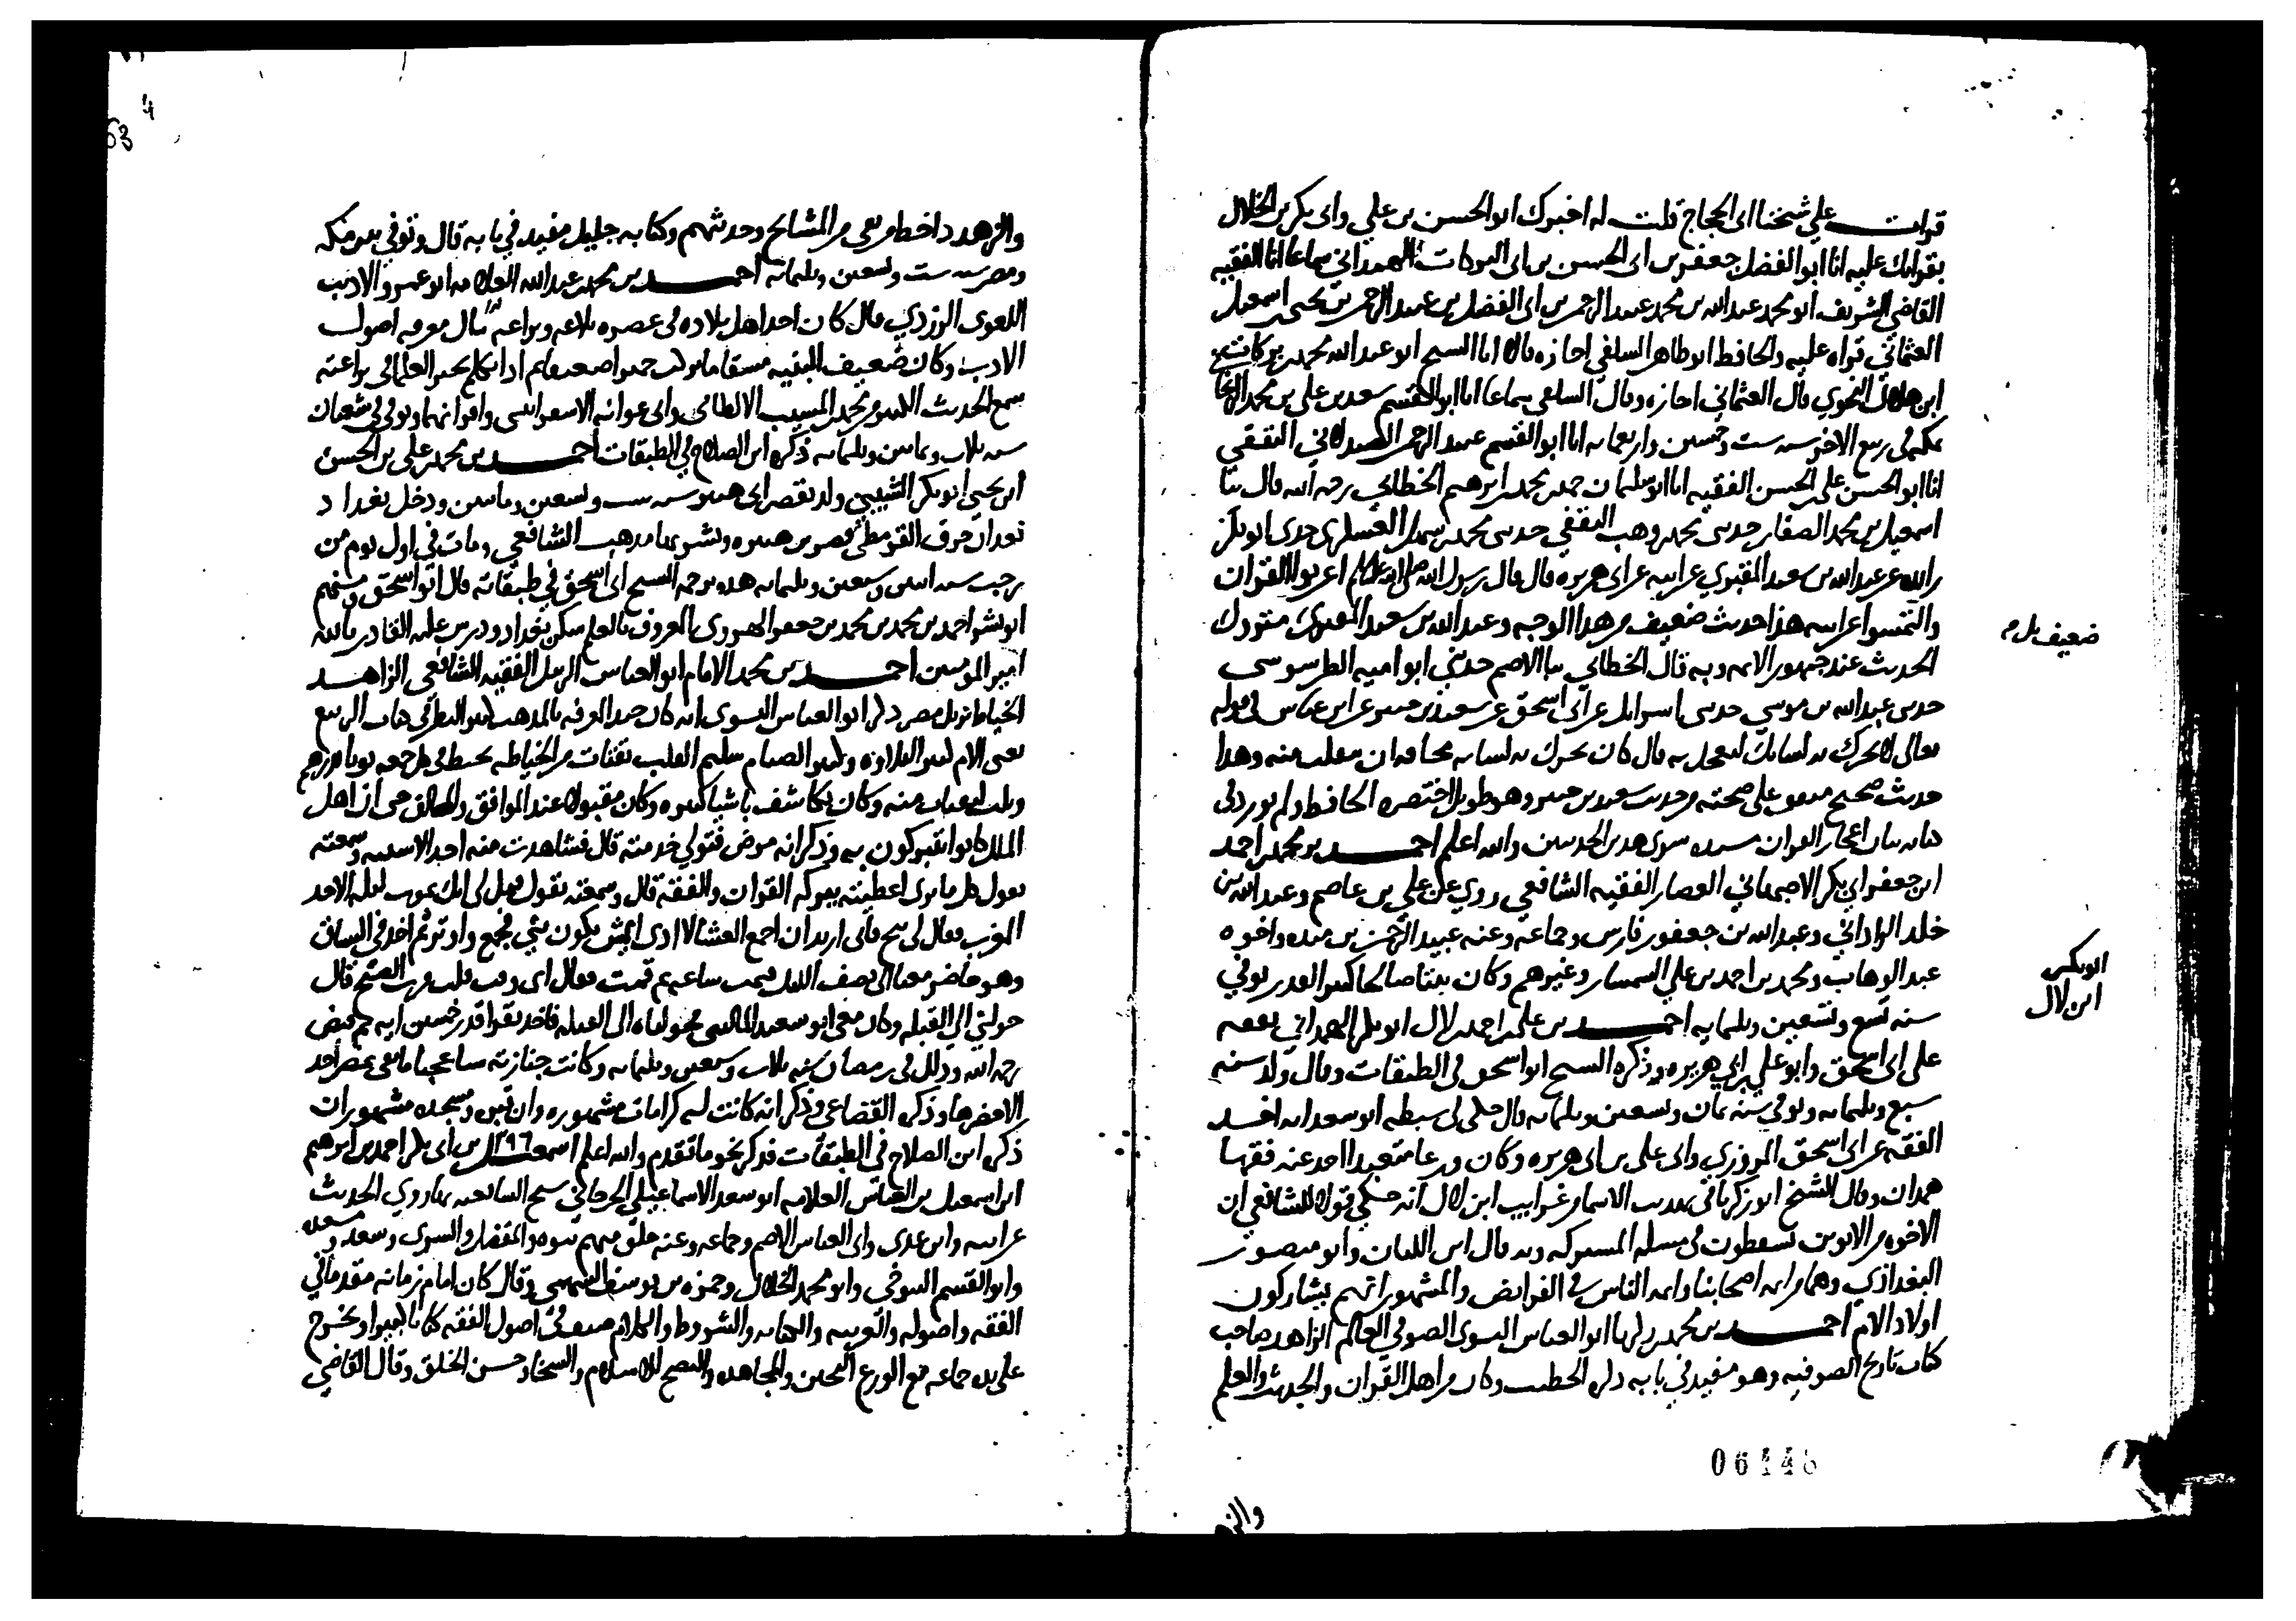 قرات علي شيخنا ابى الحجاج قلت له اخبرك ابو الحسن بن علي وابى بكر بن الخلال
بقراتك عليه انا ابو الفضل جعفر بن ابى الحسن بن ابى البركات الهمداني سماعا انا الفقيه
القاضي الشريف ابو محمد عبد الله بن محمد عبد الرحمن بن ابى الفضل بن عبد الرحمن بن يحيى اسمعيل
العثماني قراه عليه والحافظ ابو طاهر السلفي اجازه قالا انا الشيخ ابو عبد الله محمد بن بركات
ابن هلال النحوي قال العثماني اجازه وقال السلفي سماعا انا ابو القسم سعد بن علي بن محمد
بمكه في ربيع الاخر سنه ست وخمسين واربعمايه انا ابو القسم عبد الرحمن الثقفي
انا ابو الحسن علي الحسن الفقيه انا ابو سليمان حمد بن محمد بن ابرهيم الخطابي رحمه الله قال ثنا
اسمعيل بن محمد الصفار حدثنى محمد وهب الثقفي حدثنى محمد بن سهل العسكرى حدثنى ابن ابى
عن عبد الله بن سعيد المقبري عن ابيه عن ابى هريره قال قال رسول الله صلى الله عليه وسلم اعربوا القران
والتمسوا غرايبه هذا حديث ضعيف من هذا الوجه وعبد الله بن سعيد المقبرى متروك
الحديث عند جمهور الايمه وبه قال الخطابي ثنا الاصم حدثني ابو اميه الطرسوسى
حدثنى عبيد الله بن موسي حدثنى اسرايل عن ابى اسحق عن سعيد بن جبير عن ابن عباس فى قوله
تعالى لا تحرك به لسانك لتعجل به قال كان يحرك به لسانه مخافه ان يتفلت منه وهذا
حديث صحيح متفق على صحته من حديث سعيد بن جبير وهو طويل اختصره الحافظ ولم يورد فى
كتابه بيان اعجاز القران مسنده سوى هذين الحديثين والله اعلم احمد بن محمد بن احمد
ابن جعفر ابى بكر الاصبهاني القصار الفقيه الشافعي روي عن علي بن عاصم وعبد الله بن
خلد الراداني وعبد الله بن جعفر بن فارس وجماعه وعنه عبد الرحمن بن منده واخوه
عبد الوهاب ومحمد بن احمد بن علي السمسار وغيرهم وكان ثقتا صالحا كبير القدر توفي
سنه تسع وتسعين وثلثمايه احمد بن علي بن احمد بن لال ابو بكر الهمداني تفقه
على ابى اسحق وابو علي بن ابي هريره وذكره الشيخ ابو اسحق فى الطبقات وقال ولد سنه
سبع وثلثمايه وتوفي سنه ثمان وتسعين وثلثمايه قال حكى لى سبطه ابو سعد انه اخذ
الفقه عن ابى اسحق المروزي وابى علي بن ابى هريره وكان ورعا متعبدا اخذ عنه فقها
همدان وقال الشيخ ابو زكريا فى تهذيب الاسما من غرايب ابن لال انه حكي قولا للشافعي ان
الاخوه من الابوين تسقطون فى مسله المشركه وبه قال ابن اللبان وابو منصور
البغدادي وهما من ايمه اصحابنا وايمه الناس فى الفرايض والمشهور انهم يشاركون
اولاد الام احمد بن محمد بن زكريا ابو العباس النسوى الصوفي العالم الزاهد صاحب
كتاب تاريخ الصوفيه وهو مفيد في بابه ذكره الخطيب وكان من اهل القران والحديث والعلم
ضعيف
ابو بكر
ابن لال
06446
والزهد
والزهد من المشايخ وحدثهم وكتابه جليل مفيد في بابه قال وتوفي بين مكه
ومصر سنه ست وتسعين وثلثمايه احمد بن محمد بن عبد الله العلامه ابو عمرو الاديب
اللغوى الزردي قال كان احد اهل بلاده فى عصره بلاغه وبراعه معرفه اصول
الادب وكان ضعيف البنيه مسقاما يركب حمارا ضعيفا ثم اذا تكلم تحير العلما فى براعته
سمع الحديث الكثير من محمد المسيب الارغيانى وابى عوانه الاسفراينى واقرانهما وتوفى فى شعبان
سنه ثلاث وثمانين وثلثمايه ذكره ابن الصلاح في الطبقات احمد بن محمد بن علي بن الحسن
ابن يحيى ابو بكر الشيبي ولد بقصر ابن هبيره سنه ست وتسعين ومايتين ودخل بغداد
بعد ان خرق القرمطي قصر بن هبيره ونشر بها مذهب الشافعي ومات في اول يوم من
رجب سنه اثنين وسبعين وثلثمايه هذه ترجمه الشيخ ابى اسحق في طبقاته قال ابو اسحق ومنهم
ابو بشر احمد بن محمد بن محمد بن جعفر الهروى المعروف بالعالم سكن بغداد ودرس عليه القادر بالله
امير المومنين احمد بن محمد الامام ابو العباس الدبيلى الفقيه الشافعى الزاهد
الخياط نزيل مصر ذكر ابو العباس النسوى انه كان جيد المعرفه بالمذهب كثير النظر فى كتاب الربيع
يعنى الام كثير التلاوه وكثير الصيام سليم القلب يقتات من الخياطه يخيط فى كل جمعه ثوبا بدرهم
وثلث يقتات منه وكان يكاشف باشيا كثيره وكان مقبولا عند الموافق والمخالف حتى ان اهل
الملل كانوا يتبركون به وذكر انه مرض فتولى خدمته قال فشاهدت منه وسمعته
يقول كل ما ترى اعطيته ببركه القران والفقه قال وسمعته يقول قيل لى انك تموت ليله الاحد
المغرب فقال لى نح فانى اريد ان اجمع العشا لا ادرى ايش يكون منى فجمع واوتر ثم اخذ في السياق
وهو حاضر معنا الى نصف الليل فنمت ساعه ثم قمت فقال اى وقت قلت قرب الصبح قال
حولني الي القبله وكان معي ابو سعيد المالينى فحولناه الى القبله فاخذ يقرا قدر خمسين ايه ثم قبض
رحمه الله وذلك فى رمضان سنه ثلاث وسبعين وثلثمايه وكانت جنازته شيا عجيبا ما بقى بمصر احد
الا حضرها وذكره القضاعى وذكر انه كانت له كرامات مشهوره وان قبره ومسجده مشهوران
ذكره ابن الصلاح فى الطبقات فذكر نحو ما تقدم والله اعلم اسمعيل بن ابى بكر احمد بن ابرهيم
٣٩٦
ابن اسمعيل بن العباس العلامه ابو سعد الاسماعيلي الجرجاني شيخ الشافعيه بها روي الحديث
عن ابيه وابن عدى وابى العباس الاصم وجماعه وعنه خلق منهم بنوه المفضل والسرى وسعد ومسعده
وابو القسم التنوخى وابو محمد الخلال وحمزه بن يوسف السهمى وقال كان امام زمانه مقدما في
الفقه واصوله والعربيه والكتابه والشروط والكلام صنف فى اصول الفقه كتابا كبيرا وتخرج
على يده جماعه مع الورع الثخين والمجاهده والنصح للاسلام والسخا وحسن الخلق وقال القاضي